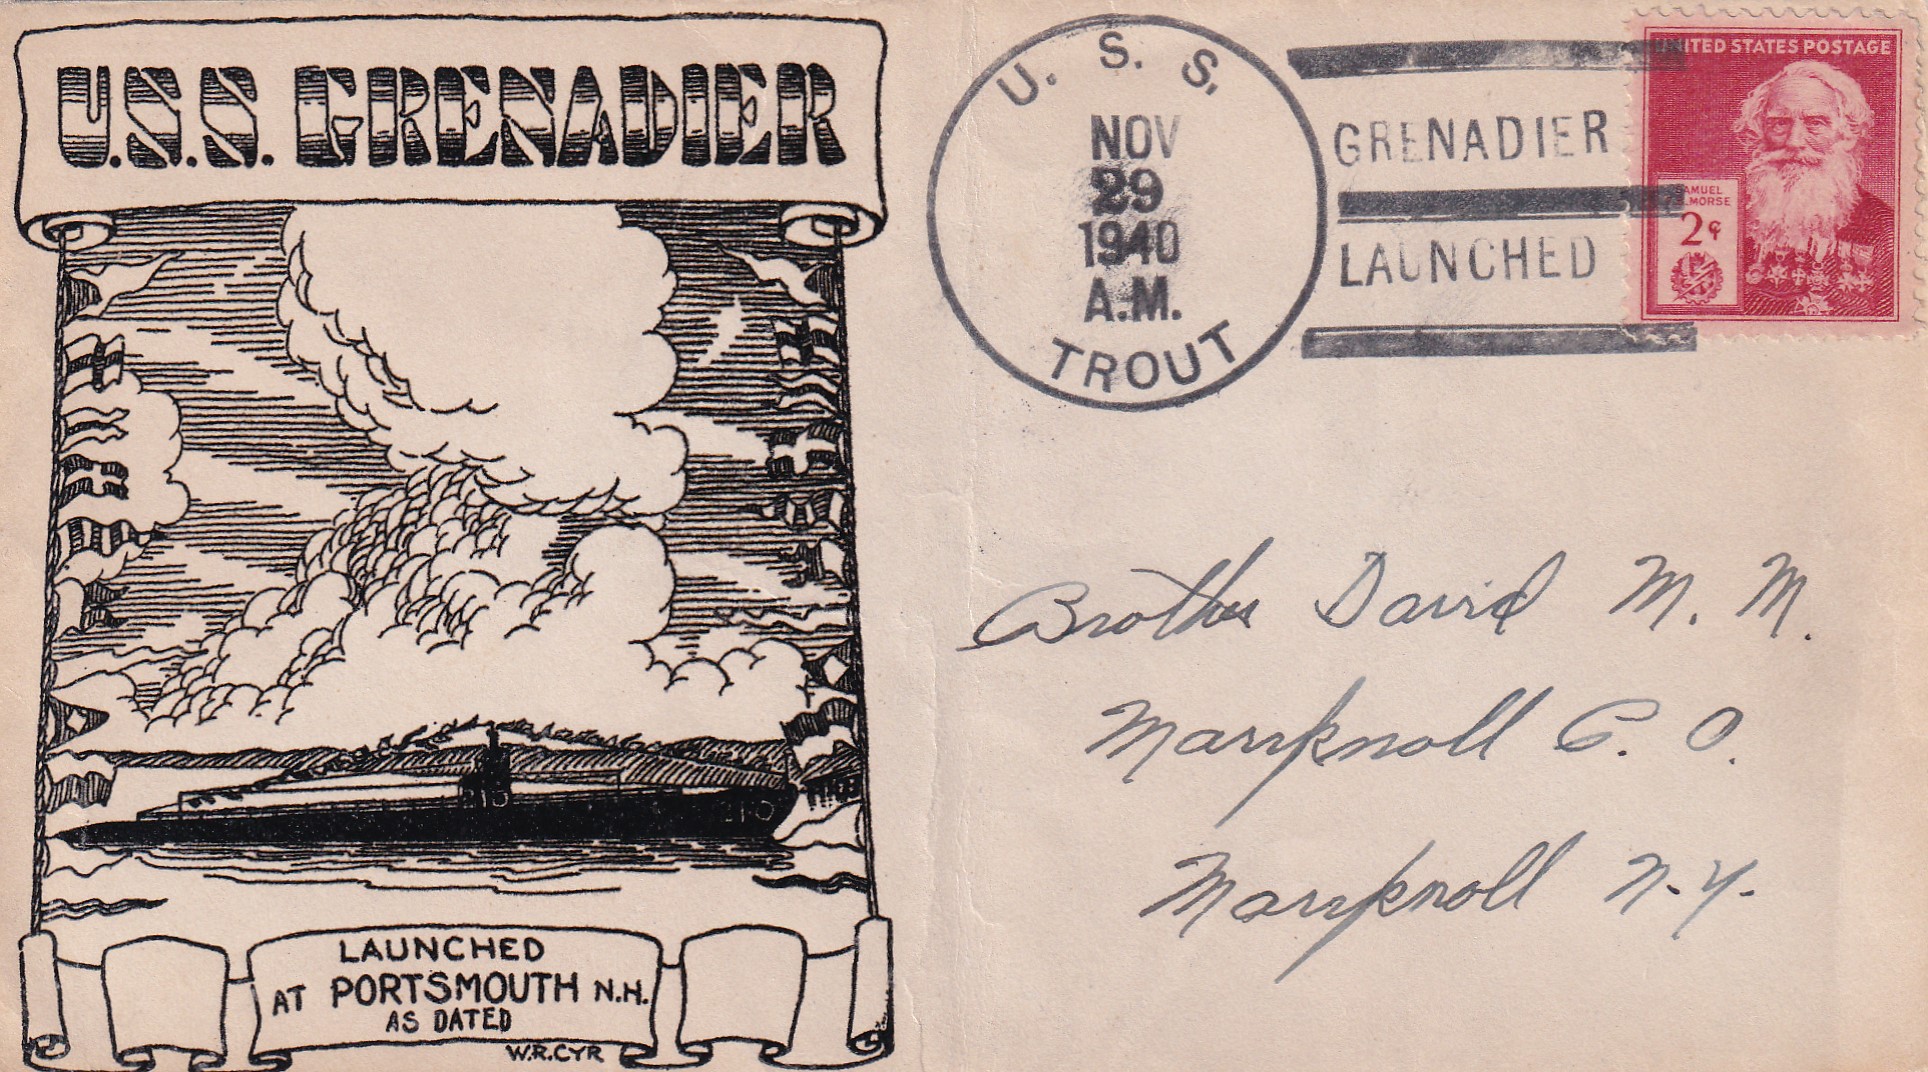 U.S.S. GRENADIER
210
210
LAUNCHED
AT PORTSMOUTH N.H.
AS DATED
W.R.CYR
U. S. S.
NOV
29
1940
A.M.
TROUT
GRENADIER
LAUNCHED
UNITED STATES POSTAGE
SAMUEL
F.B.MORSE
2¢
Brother David M. M.
Maryknoll P. O.
Maryknoll N.Y.